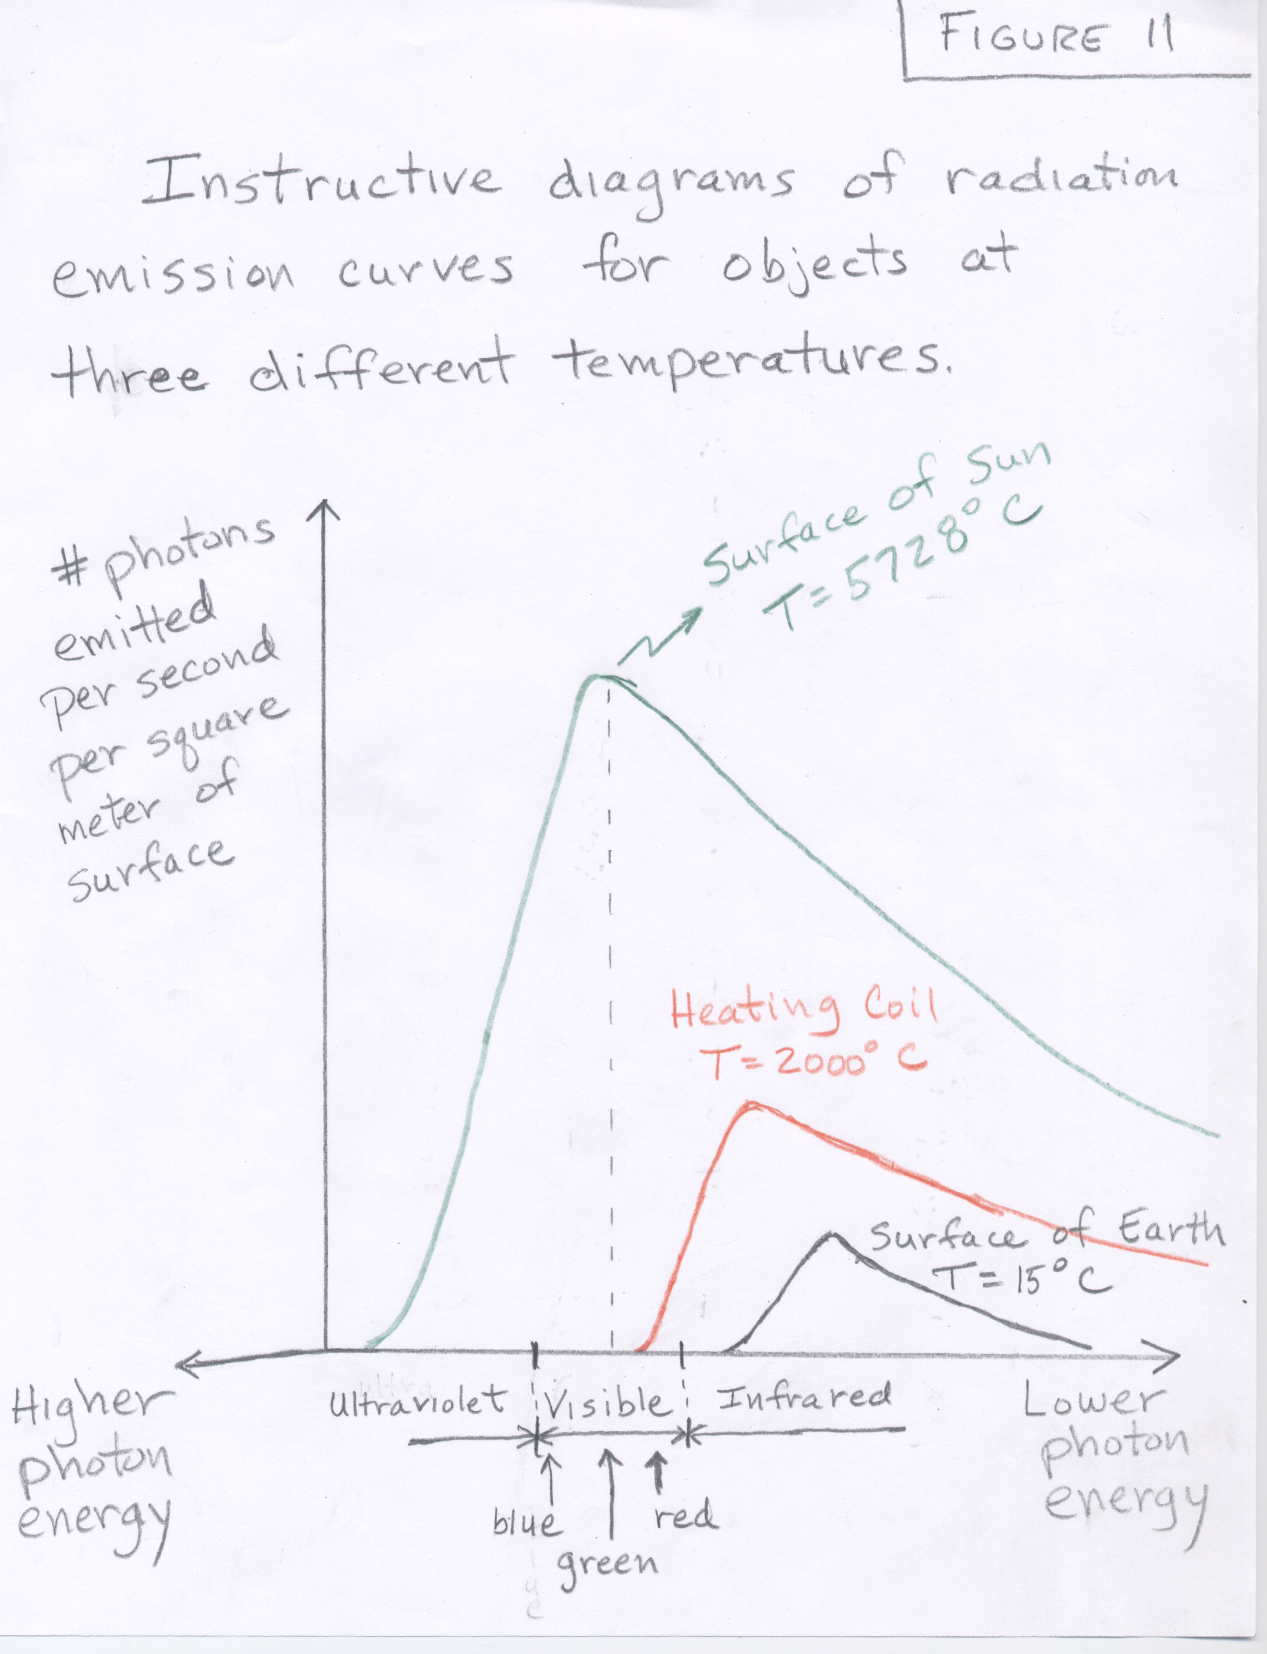 FIGURE 11
Instructive diagrams of radiation
emission curves for objects at
three different temperatures.
Surface of Sun
T = 5728° C
# photons
emitted
per second
per square
meter of
surface
Heating Coil
T = 2000° C
Surface of Earth
T = 15° C
Higher
photon
energy
Ultraviolet Visible Infrared
Lower
photon
energy
blue red
green